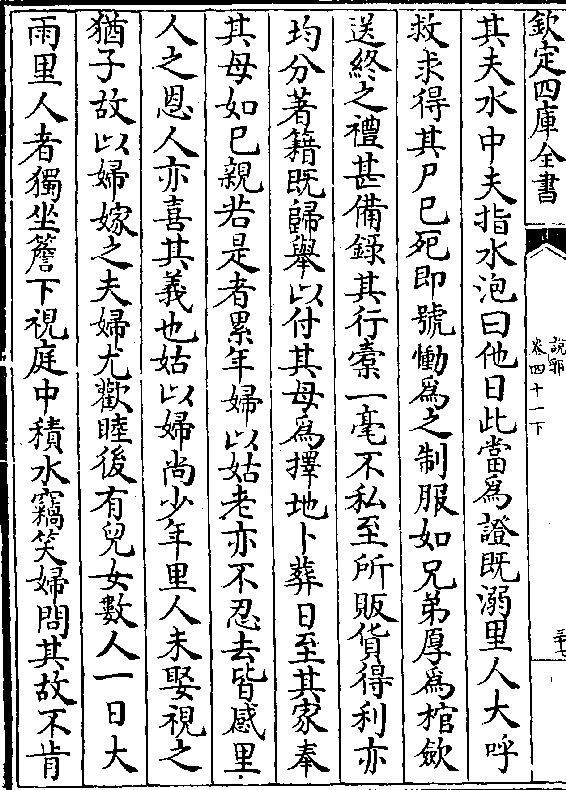 欽定四庫全書
說郛
卷四十一下
三十七
其夫水中夫指水泡曰他日此當爲證既溺里人大呼
救求得其尸已死即號慟爲之制服如兄弟厚爲棺歛
送終之禮甚備錄其行橐一毫不私至所販貨得利亦
均分著籍既歸舉以付其母爲擇地卜葬日至其家奉
其母如已親若是者累年婦以姑老亦不忍去皆感里
人之恩人亦喜其義也姑以婦尚少年里人未娶視之
猶子故以婦嫁之夫婦尤歡睦後有兒女數人一日大
雨里人者獨坐簷下視庭中積水竊笑婦問其故不肯